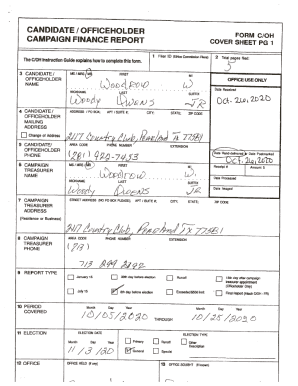 CANDIDATE / OFFICEHOLDER FORM C/OH
CAMPAIGN FINANCE REPORT COVER SHEET PG 1
The C/OH Instruction Guide explains how to complete this form. 1 Filer ID (Ethics Commission Filers) 2 Total pages filed:
3 CANDIDATE / OFFICEHOLDER NAME
MS / MRS / MR FIRST MI
Woodrow W.
NICKNAME LAST SUFFIX
Woody Owens JR
OFFICE USE ONLY
Date Received
Oct. 26, 2020
4 CANDIDATE / OFFICEHOLDER MAILING ADDRESS
Change of Address
ADDRESS / PO BOX; APT / SUITE #; CITY; STATE; ZIP CODE
2417 Country Club, Pearland Tx 77581
5 CANDIDATE/ OFFICEHOLDER PHONE
AREA CODE PHONE NUMBER EXTENSION
(281)
Date Hand-delivered or Date Postmarked
Oct. 26, 2020
Receipt # Amount $
Date Processed
Date Imaged
6 CAMPAIGN TREASURER NAME
MS / MRS / MR FIRST MI
Woodrow W.
NICKNAME LAST SUFFIX
Woody Owens JR
7 CAMPAIGN TREASURER ADDRESS
(Residence or Business)
STREET ADDRESS (NO PO BOX PLEASE); APT / SUITE #; CITY; STATE; ZIP CODE
2417 Country Club, Pearland TX 77581
8 CAMPAIGN TREASURER PHONE
AREA CODE PHONE NUMBER EXTENSION
(713)
9 REPORT TYPE
January 15 30th day before election Runoff 15th day after campaign treasurer appointment (Officeholder Only)
July 15 8th day before election Exceeded $500 limit Final report (Attach C/OH - FR)
10 PERIOD COVERED
Month Day Year Month Day Year
10/05/2020 THROUGH 10/25/2020
11 ELECTION
ELECTION DATE ELECTION TYPE
Month Day Year
11/3/20
Primary Runoff Other Description
General Special
12 OFFICE OFFICE HELD (if any) 13 OFFICE SOUGHT (if known)